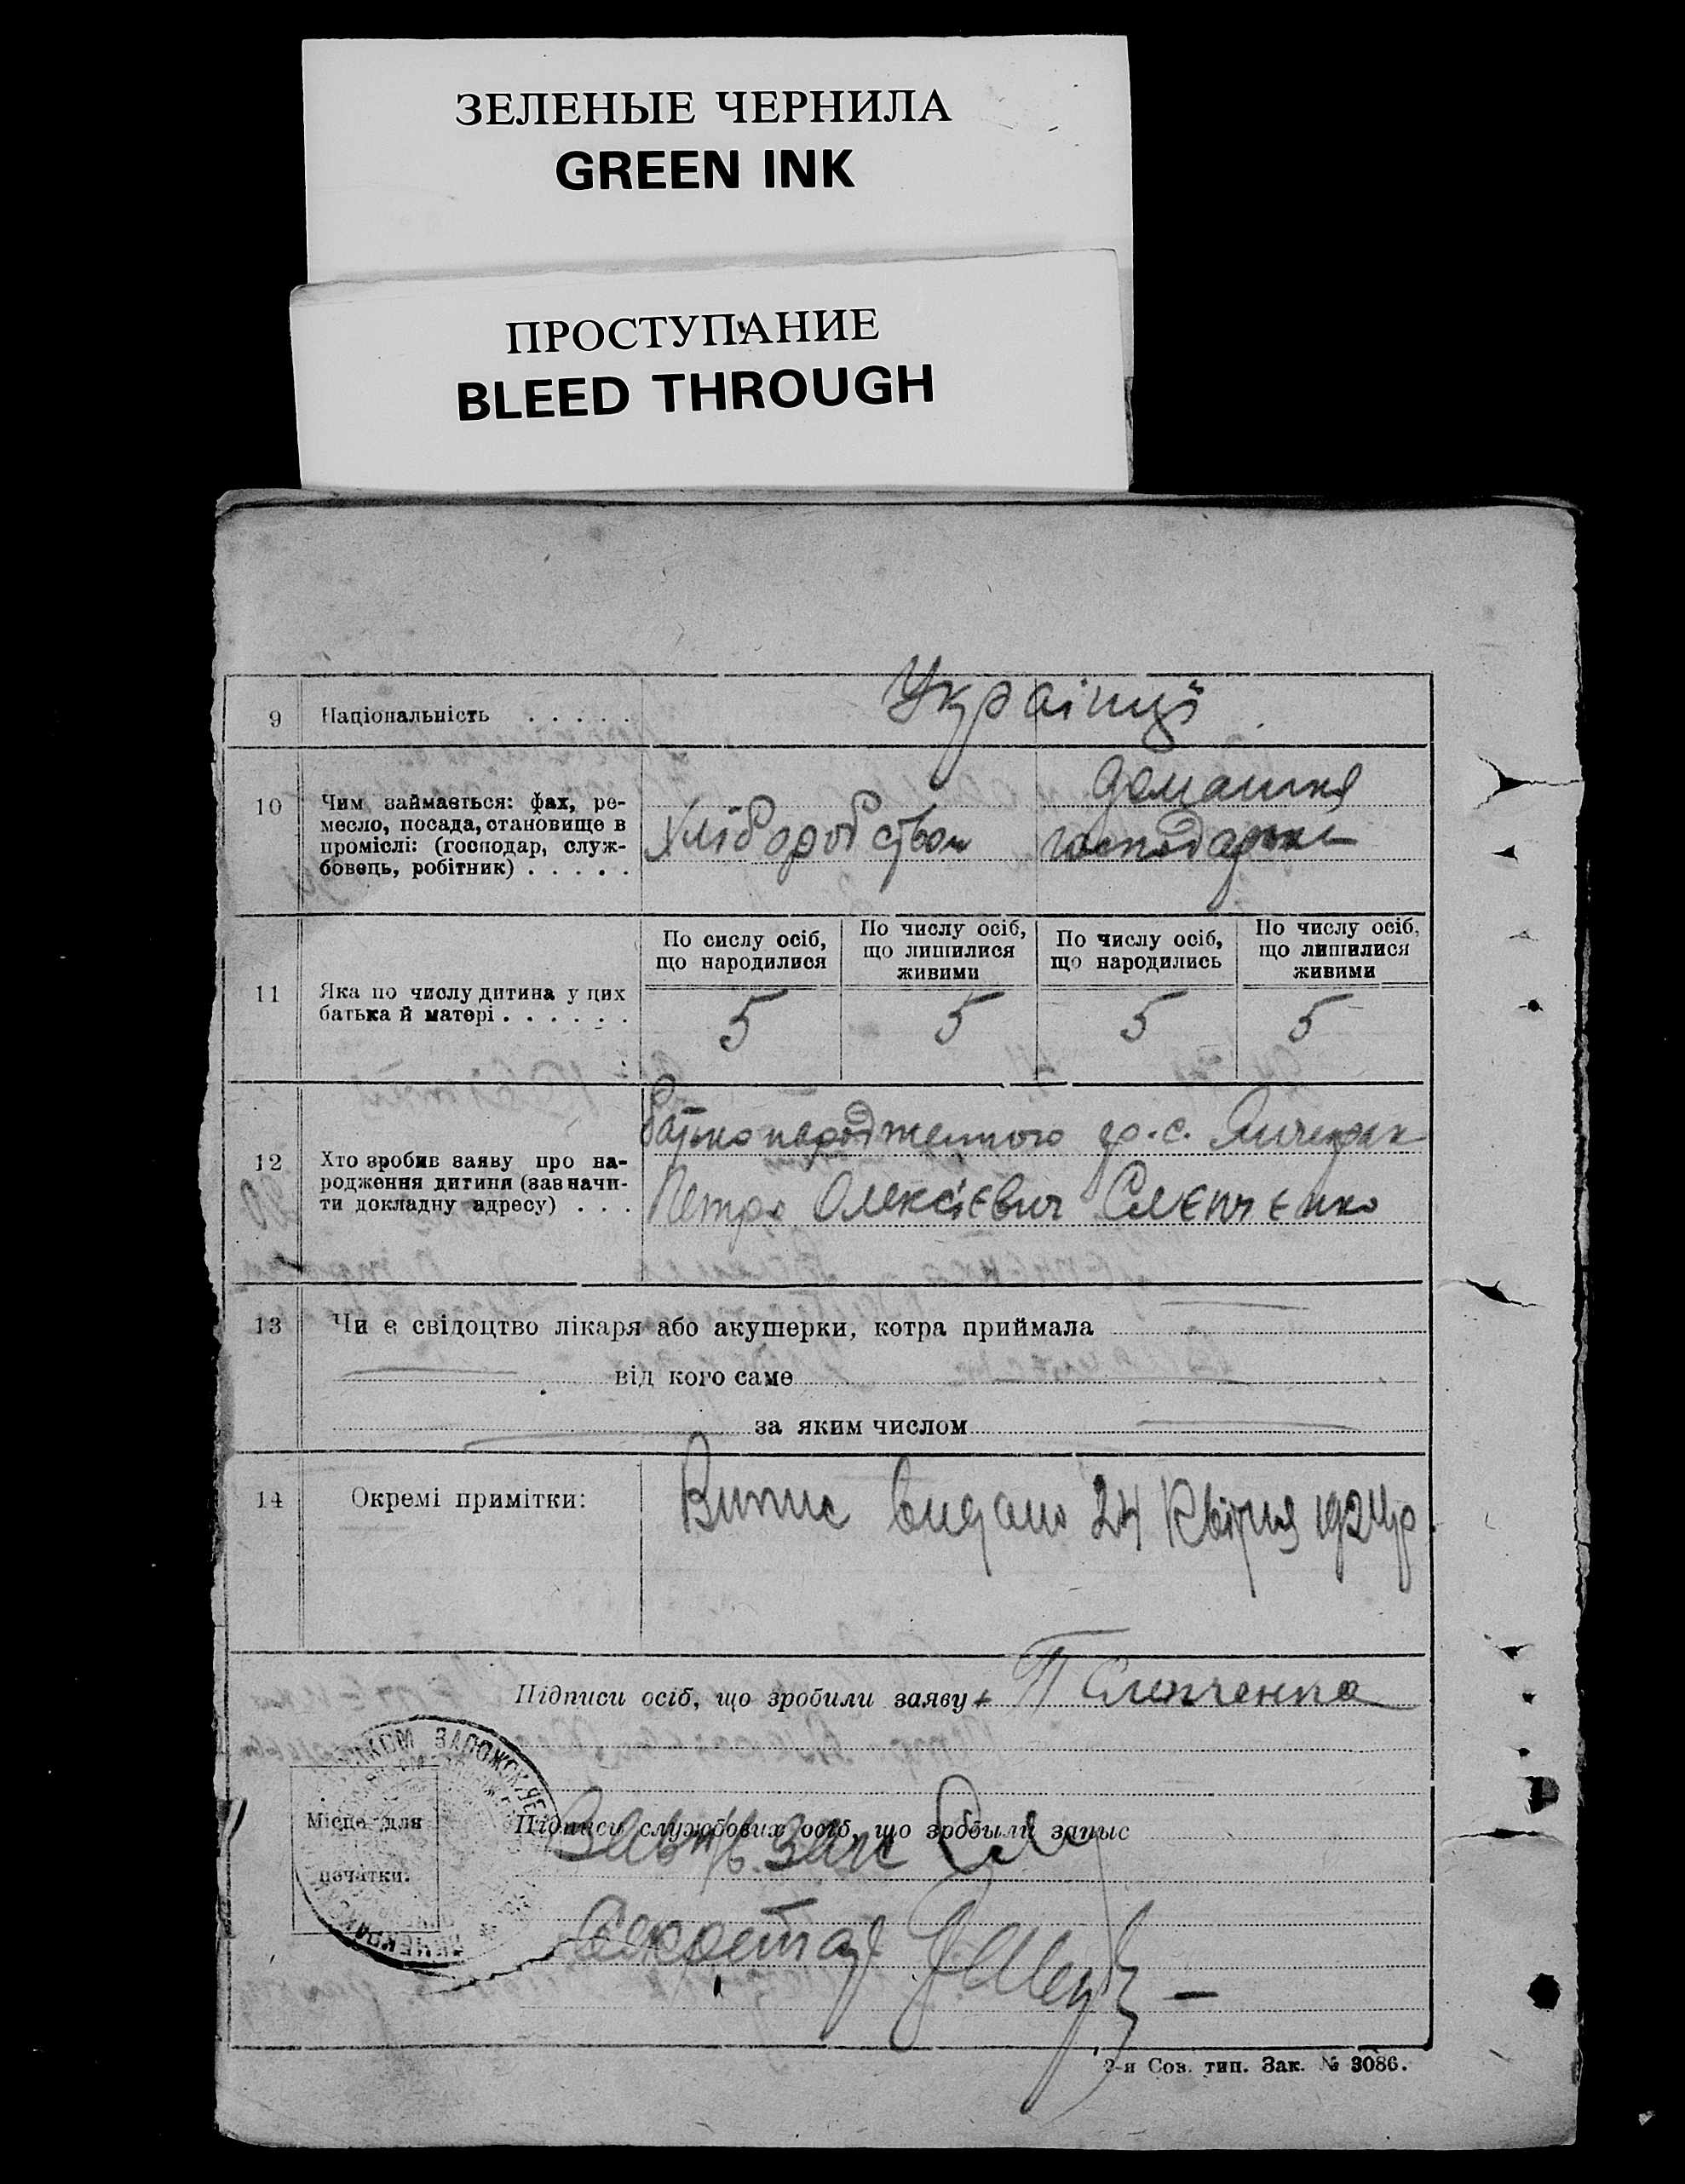 ЗЕЛЕНЫЕ ЧЕРНИЛА
GREEN INK
ПРОСТУПАНИЕ
BLEED THROUGH
9 Національність . . . . . Українці
10 Чим займається: фах, ре-
месло, посада, становище в
проміслі: (господар, служ-
бовець, робітник) . . . . .
Хліборобством
домашня
господарка
11 Яка по числу дитина у цих
батька й матері . . . . . .
По сислу осіб,
що народилися
По числу осіб,
що лишилися
живими
По числу осіб,
що народились
По числу осіб,
що лишилися
живими
5 5 5 5
12 Хто зробив заяву про на-
родження дитиня (зазначи-
ти докладну адресу) . . .
батько народженного гр. с.
Петро Олексієвич Слєпчєнко
13 Чи є свідоцтво лікаря або акушерки, котра приймала
від кого саме
за яким числом
14 Окремі примітки:
Випис видано 24 Квітня 1924р
Підписи осіб, що зробили заяву П Слепченко
Місце для
печатки.
Підписи службових осіб, що зробылі запыс
Секретар
2-я Сов. тип. Зак. № 3086.